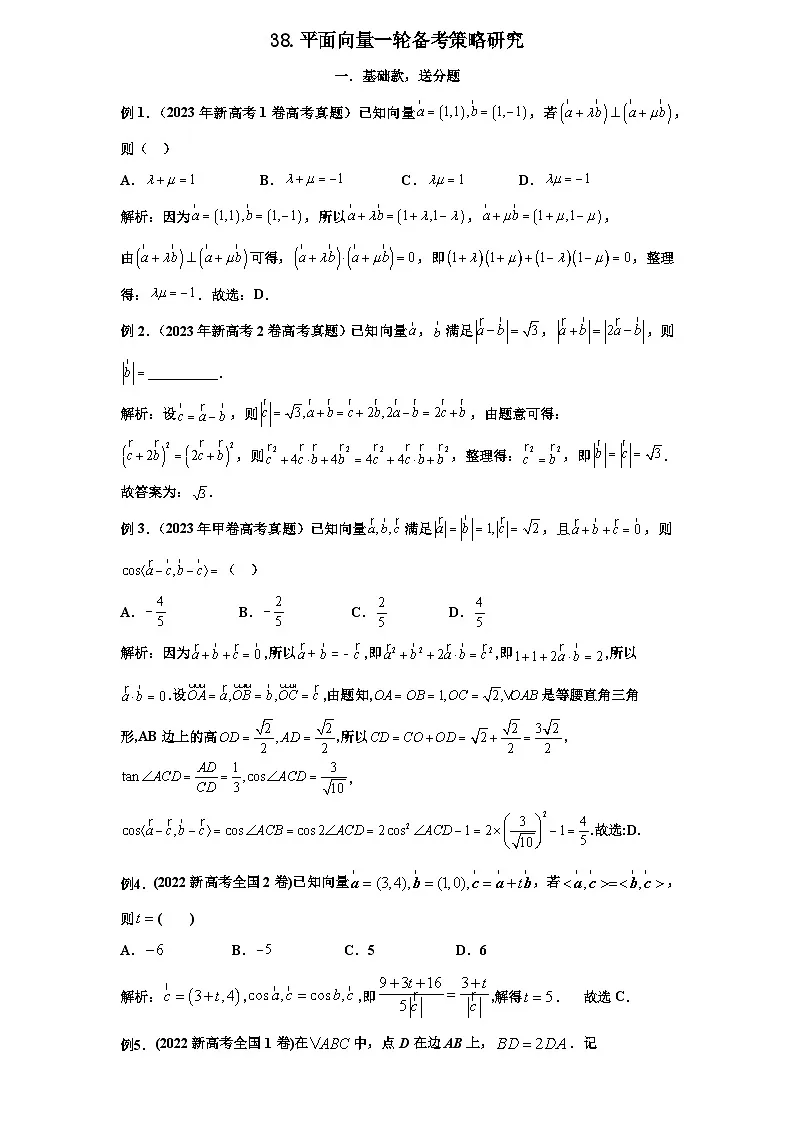 38. 平面向量一轮备考策略研究
一. 基础款，送分题
例 1.（2023 年新高考 1 卷高考真题）已知向量 a = (1,1), b = (1,−1)，若 (a + λb) ⊥ (a + μb)，
则（ ）
A. λ + μ = 1 B. λ + μ = −1 C. λμ = 1 D. λμ = −1
解析：因为 a = (1,1), b = (1,−1)，所以 a + λb = (1 + λ,1 − λ)，a + μb = (1 + μ,1 − μ)，
由 (a + λb) ⊥ (a + μb) 可得，(a + λb)·(a + μb) = 0，即 (1 + λ)(1 + μ) + (1 − λ)(1 − μ) = 0，整理
得：λμ = −1. 故选：D.
例 2.（2023 年新高考 2 卷高考真题）已知向量 a，b 满足 |a − b| = √3，|a + b| = |2a − b|，则
|b| = __________.
解析：设 c = a − b，则 |c| = √3, a + b = c + 2b, 2a − b = 2c + b，由题意可得：
(c + 2b)² = (2c + b)²，则 c² + 4c·b + 4b² = 4c² + 4c·b + b²，整理得：c² = b²，即 |b| = |c| = √3.
故答案为：√3.
例 3.（2023 年甲卷高考真题）已知向量 a, b, c 满足 |a| = |b| = 1, |c| = √2，且 a + b + c = 0，则
cos⟨a − c, b − c⟩ =（ ）
A. −4/5 B. −2/5 C. 2/5 D. 4/5
解析：因为 a + b + c = 0 ,所以 a + b = −c ,即 a² + b² + 2a·b = c² ,即 1 + 1 + 2a·b = 2 ,所以
a·b = 0 .设 OA = a, OB = b, OC = c ,由题知, OA = OB = 1, OC = √2, VOAB 是等腰直角三角
形,AB 边上的高 OD = √2/2, AD = √2/2 ,所以 CD = CO + OD = √2 + √2/2 = 3√2/2 ,
tan∠ACD = AD/CD = 1/3, cos∠ACD = 3/√10 ,
cos⟨a − c, b − c⟩ = cos∠ACB = cos2∠ACD = 2cos²∠ACD − 1 = 2×(3/√10)² − 1 = 4/5 .故选:D.
例4. (2022 新高考全国 2 卷)已知向量 a = (3,4), b = (1,0), c = a + tb，若 < a, c >=< b, c >，
则 t = ( )
A. −6 B. −5 C. 5 D. 6
解析：c = (3 + t, 4) , cos a, c = cos b, c ,即 (9 + 3t + 16)/(5|c|) = (3 + t)/|c| ,解得 t = 5 . 故选 C.
例5. (2022 新高考全国 1 卷)在 VABC 中，点 D 在边 AB 上，BD = 2DA . 记